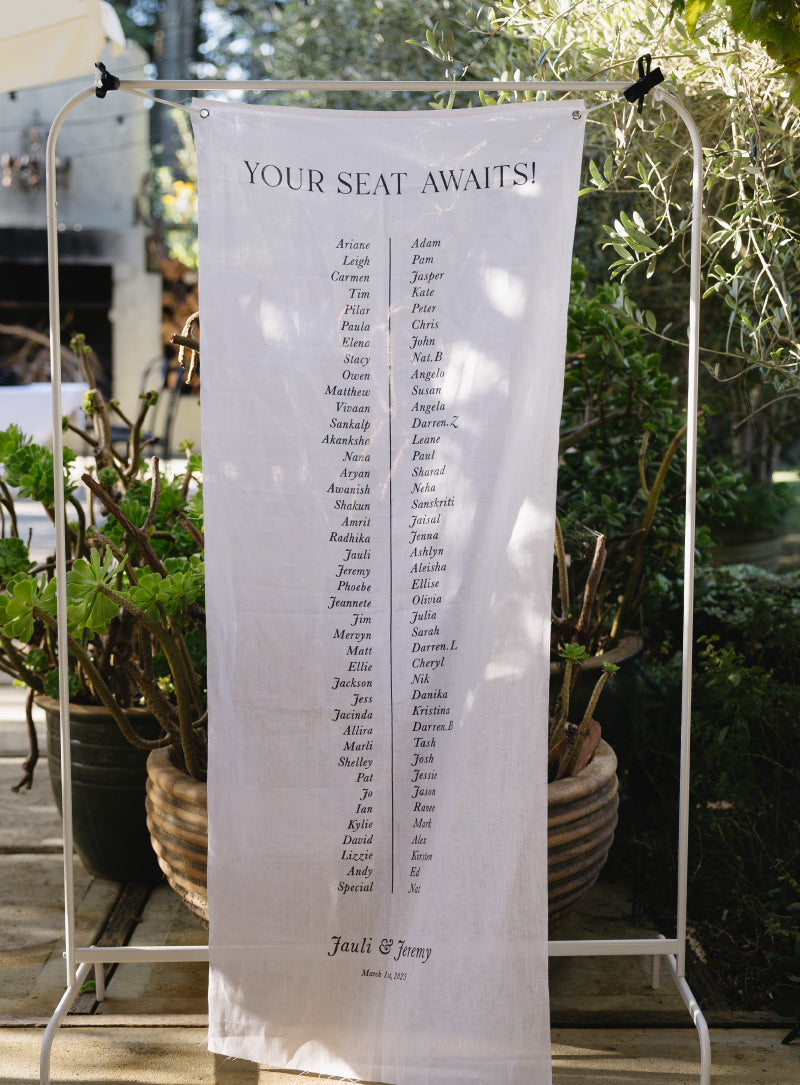 YOUR SEAT AWAITS!
Ariane Adam
Leigh Pam
Carmen Jasper
Tim Kate
Pilar Peter
Paula Chris
Elena John
Stacy Nat.B
Owen Angelo
Matthew Susan
Vivaan Angela
Sankalp Darren.Z
Akanksha Leane
Nana Paul
Aryan Sharad
Awanish Neha
Shakun Sanskriti
Amrit Jaisal
Radhika Jenna
Jauli Ashlyn
Jeremy Aleisha
Phoebe Ellise
Jeannete Olivia
Jim Julia
Mervyn Sarah
Matt Darren.L
Ellie Cheryl
Jackson Nik
Jess Danika
Jacinda Kristina
Allira Darren.B
Marli Tash
Shelley Josh
Pat Jessie
Jo Jason
Ian Ranee
Kylie Mark
David Alex
Lizzie Kirsten
Andy Ed
Special Nat
Jauli & Jeremy
March 1st, 2025